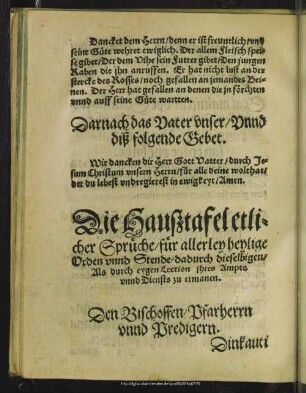 Dancket dem Herrn/denn er ist freuntlich/vnd
seine Güte wehret ewiglich. Der allem Fleisch spei-
se gibet/Der dem Vihe sein Futter gibet/Den jungen
Raben die jhn anruffen. Er hat nicht lust an der
stercke des Rosses/noch gefallen an jemandes Bei-
nen. Der Herr hat gefallen an denen die jn förchten
vnnd auff seine Güte wartten.
Darnach das Vater vnser/Vnnd
diß folgende Gebet.
Wir dancken dir Herr Gott Vatter/durch Je-
sum Christum vnsern Herrn/für alle deine wolthat/
der du lebest vnd regierest in ewigkeyt/Amen.
Die Haußtafel etli-
cher Sprüche/für allerley heylige
Orden vnnd Stende/dadurch dieselbigen/
Als durch eygen Lection jhres Ampts
vnnd Diensts zu ermanen.
Den Bischoffen/Pfarherrn
vnnd Predigern.